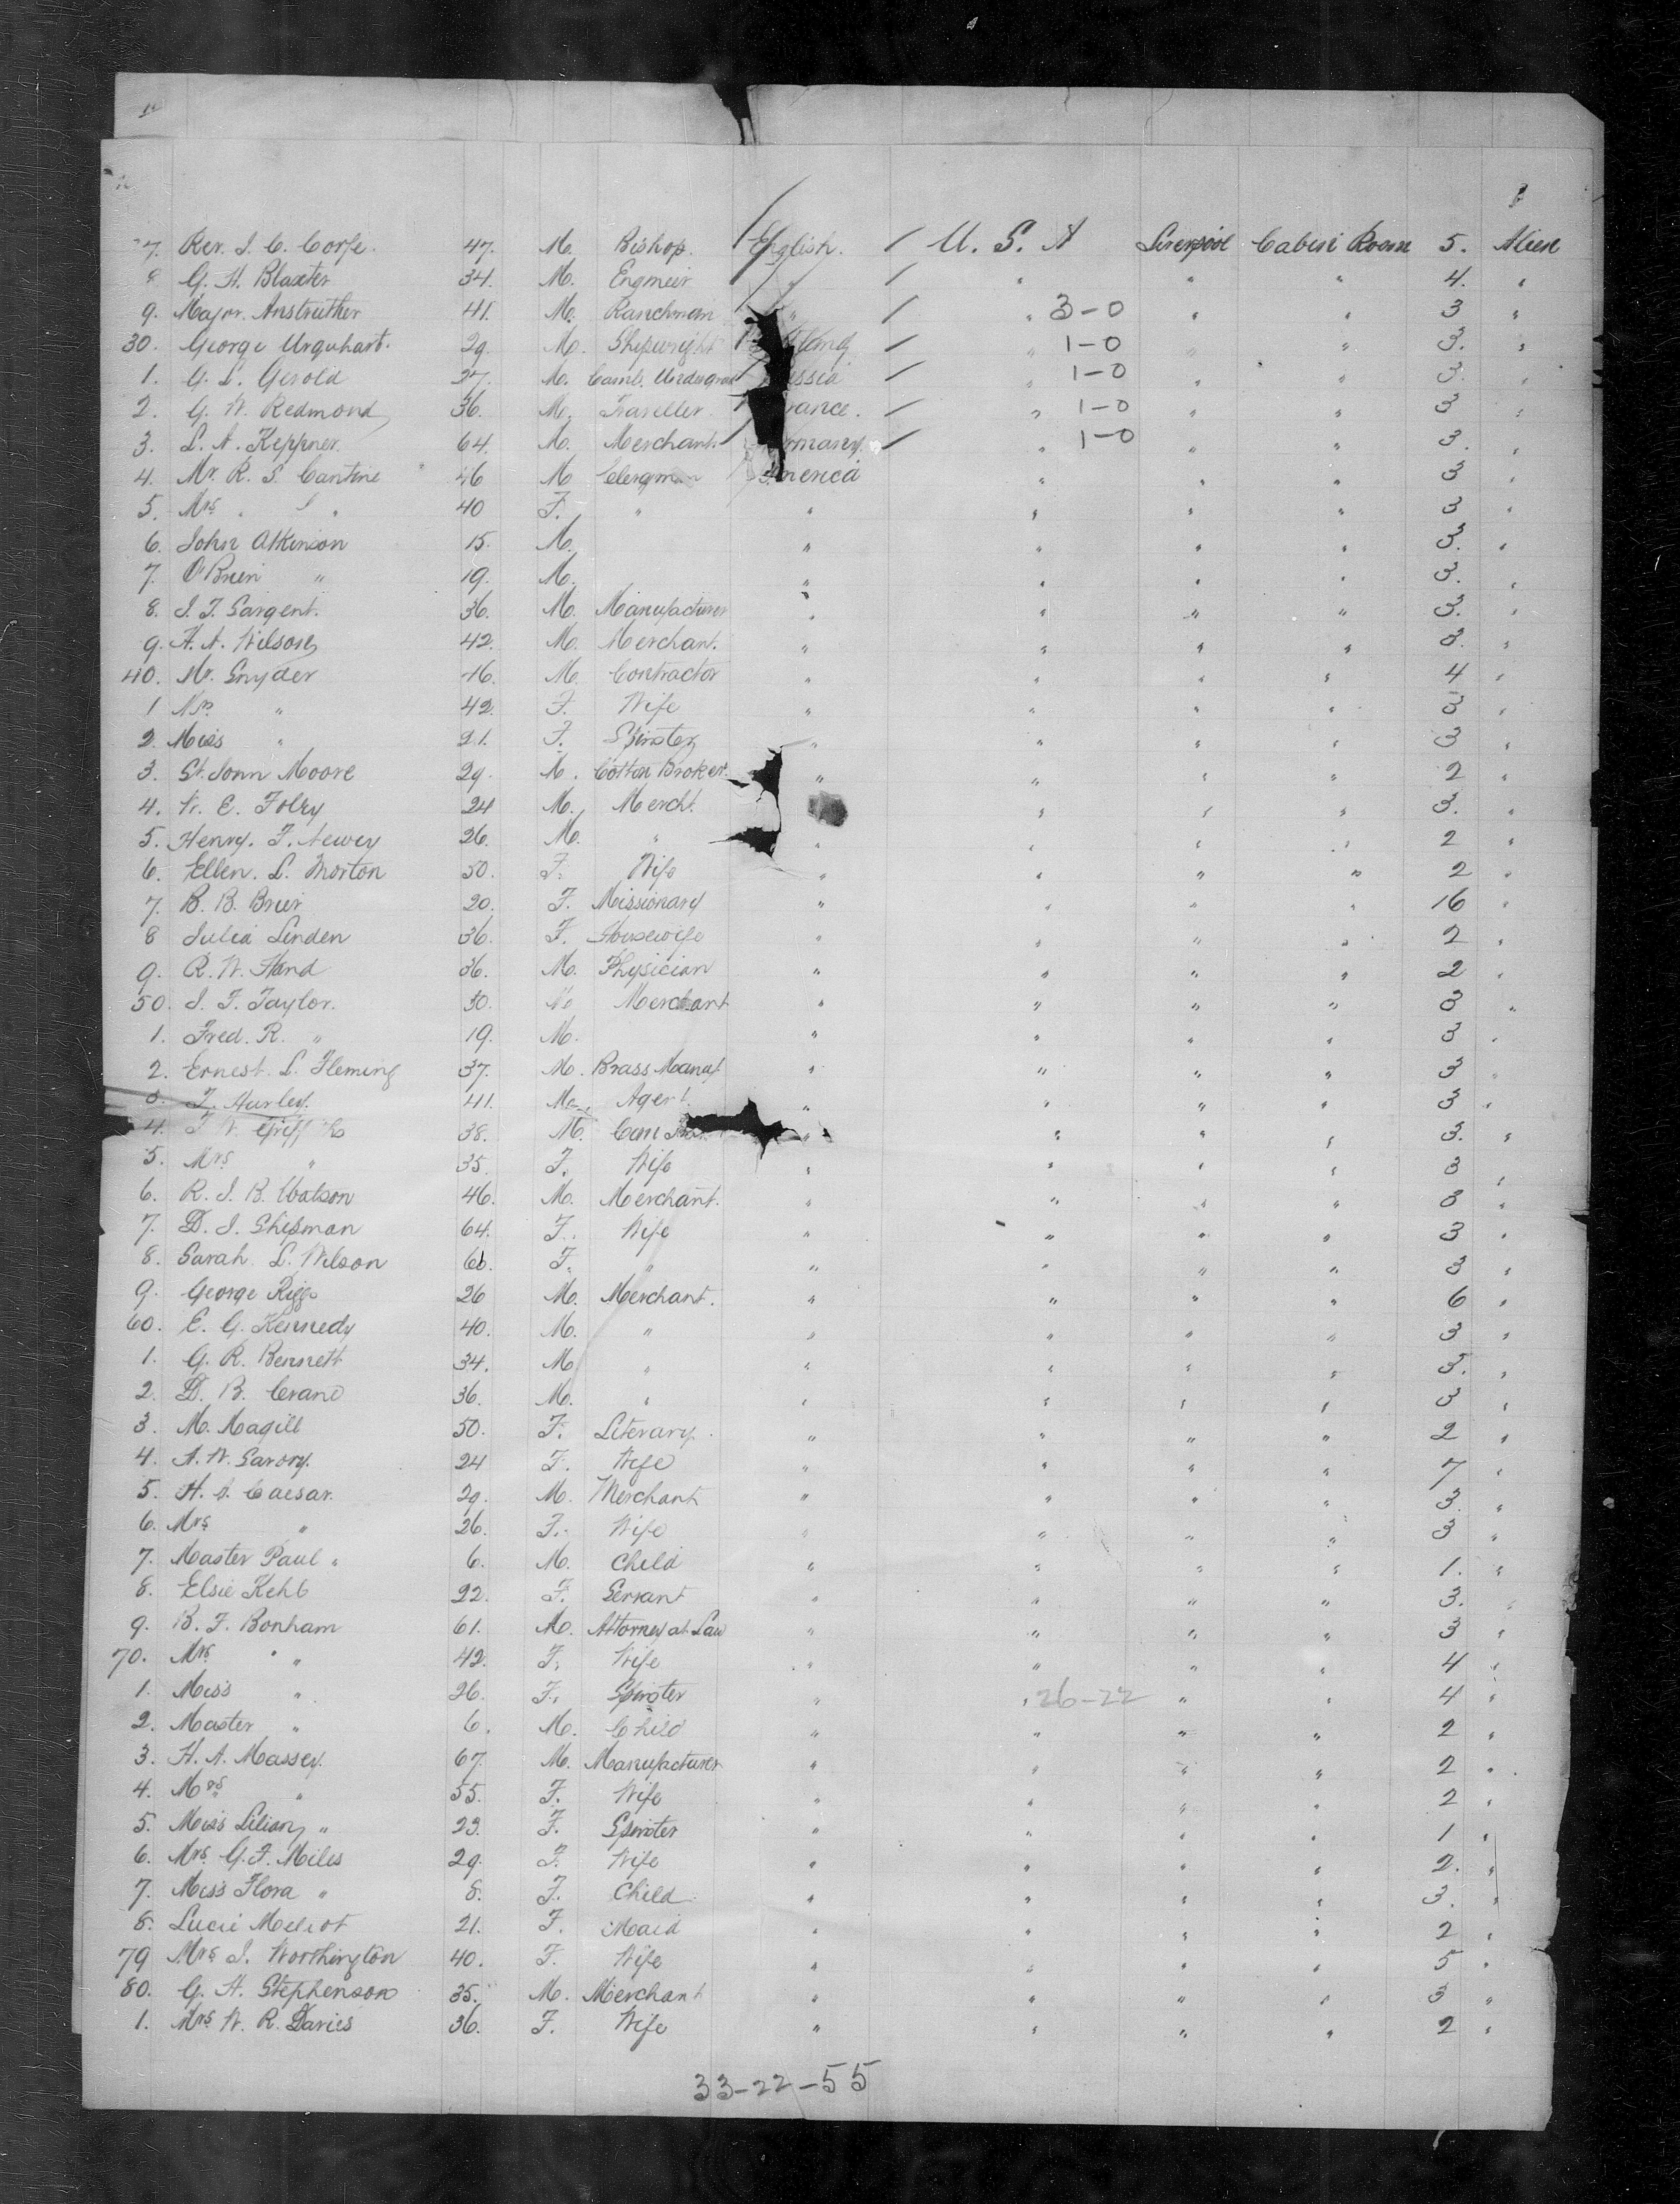 7. Rev. J. C. Corfe. 47. M. Bishop. English. / U. S. A Liverpool Cabin Room 5. Alien
8 G. H. Blaxter 34. M. Engineer " / " " " 4. "
9. Major. Anstruther 41. M. Ranchman " / " 3-0 " " 3 "
30. George Urquhart. 29. M. Shipwright / " 1-0 " " 3. "
1. G. L. Gerold 27. M. Camb. Undergrad ussia / " 1-0 " " 3. "
2. G. W. Redmond 36. M. Traveller. rance. / " 1-0 " " 3 "
3. L. A. Keppner. 64. M. Merchant rmany. / " 1-0 " " 3. "
4. Mr. R. S. Cantine 46 M Clergman America " " " 3 "
5. Mrs " " 40 F. " " " " " 3 "
6. John Atkinson 15. M. " " " " 3. "
7. O'Brien " 19. M. " " " " 3. "
8. J. F. Sargent. 36. M. Manufacturer " " " " 3. "
9. H. A. Wilson 42. M. Merchant. " " " " 3. "
40. Mr. Snyder 46. M. Contractor " " " " 4 "
1 Mrs " 42. F. Wife " " " " 3 "
2. Miss " 21. F. Spinster " " " " 3 "
3. St. John Moore 29. M. Cotton Broker. " " " " 2 "
4. W. E. Foley 24 M. Mercht. " " " 3. "
5. Henry. F. Newey 26. M. " " " " " 2 "
6. Ellen. L. Morton 50. F. Wife " " " " 2 "
7. B. B. Brier 20. F. Missionary " " " " 16 "
8 Julia Linden 36. F. Housewife " " " " 2 "
9. R. W. Hand 36. M. Physician " " " " 2 "
50. J. F. Taylor. 50. M Merchant " " " " 3 "
1. Fred. R. " 19. M. " " " " 3 "
2. Ernest. L. Fleming 37. M. Brass Manuf " " " " 3 "
3. T. Hurley. 41. M. Agent. " " " " 3 "
4. F W Griffith 38. M. " " " " 3. "
5. Mrs " 35. F. Wife " " " " 3 "
6. R. J. B. Watson 46. M. Merchant. " " " " 3 "
7. D. J. Shipman 64. F. Wife " " " " 3 "
8. Sarah. L. Wilson 60. F. " " " " " 3 "
9. George Riggs 26 M. Merchant. " " " " 6 "
60. E. G. Kennedy 40. M. " " " " " 3 "
1. G. R. Bennett 34. M " " " " " 3. "
2. D. B. Crane 36. M. " " " " " 3 "
3. M. Magill 50. F. Literary. " " " " 2 "
4. A. W. Savory. 24 F. Wife " " " " 7 "
5. H. A. Caesar. 29. M. Merchant " " " " 3. "
6. Mrs " 26. F. Wife " " " " 3 "
7. Master Paul " 6. M. Child " " " " 1. "
8. Elsie Kehl 22. F. Servant " " " " 3. "
9. B. F. Bonham 61. M. Attorney at Law " " " " 3 "
70. Mrs " " 42. F. Wife " " " " 4 "
1. Miss " 26. F. Spinster " " 26-22 " " 4 "
2. Master " 6. M. Child " " " " 2 "
3. H. A. Massey. 67. M. Manufacturer " " " " 2 "
4. Mrs " 55. F. Wife " " " " 2 "
5. Miss Lilian " 23. F. Spinster " " " " 1 "
6. Mrs. G. F. Miles 29. F. Wife " " " " 2. "
7. Miss Flora " 8. F. Child " " " " 3. "
8. Lucie Meliot 21. F. Maid " " " " 2 "
79 Mrs J. Worthington 40. F. Wife " " " " 5 "
80. G. H. Stephenson 35. M. Merchant " " " " 3 "
1. Mrs W. R. Davies 36. F. Wife " " " " 2 "
33-22-55